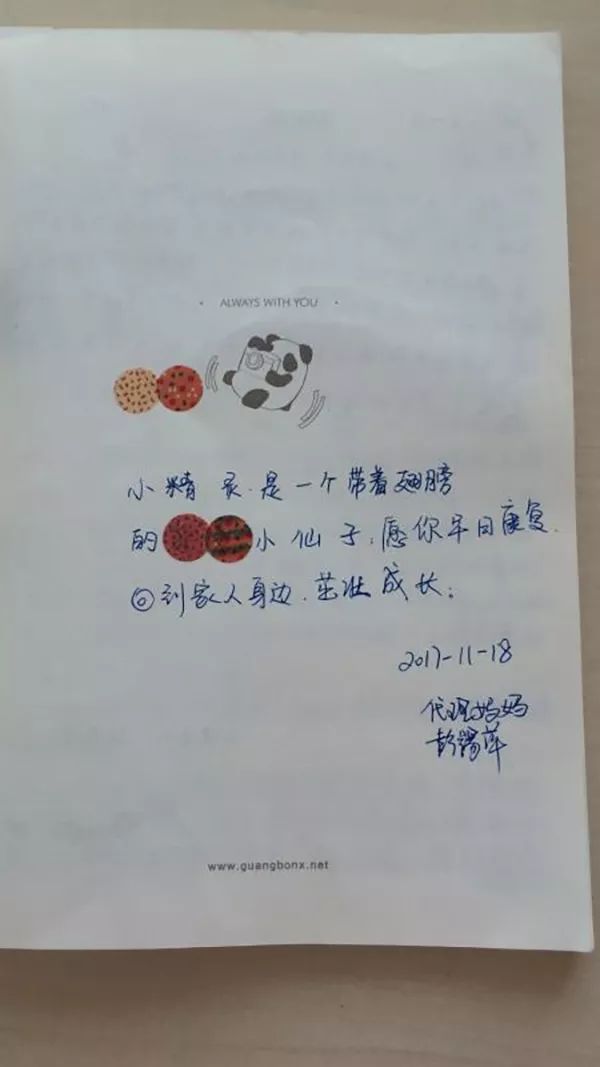 ALWAYS WITH YOU
小精灵.是一个带着翅膀
的小仙子,愿你早日康复.
回到家人身边.茁壮成长;
2017-11-18
代理妈妈
www.guangbonx.net